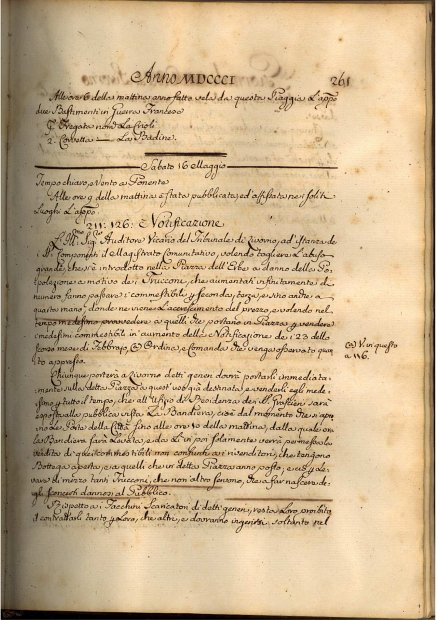 Anno MDCCCI 261
Alle ore 6 della mattina anno fatto vela da questa Piaggia l'appo
due Bastimenti in Guerra Francese
1. Fregata nomta La Crioli
2. Corvetta — La Badine
Sabato 16 Maggio
Tempo chiaro, Vento a Ponente
Alle ore 9 della mattina è stata pubblicata, ed affissata nei soliti
Luoghi L'appo
211: 126: Notificazione
L'Illmo Sigr Auditore Vicario del Tribunale di Livorno, ad istanza de
Si Componenti il Magistrato Comunitativo, volendo togliere L'abuso
grande, che si è introdotto nella Piazza dell'Erbe a danno della Po-
polazione a motivo dei Trucconi, che aumentati infinitamente di
numero fanno passare i commestibili p seconda, terza, e sino anche a
quarta mano, donde ne viene L'accrescimento del prezzo, e volendo nel
tempo medesimo provvedere a quelli, che portano in Piazza p vendere
i medesimi commestibili in aumento della Notificazione de 23 dello
scorso mese di Febbrajo, (a) Ordina, e comanda che venga osservato quan-
to appresso.
(a) V. in questo
a 116.
Chiunque porterà a Livorno detti generi dovrà portarli immediata-
mente sulla detta Piazza a quest'uso già destinata, e venderli egli mede-
simo p tutto il tempo, che all' Ufizio di Residenza dei SS. Grascieri sarà
esposta alla pubblica vista La Bandiera, cioè dal momento che si apri-
no le Porte della Città fino alle ore 10 della mattina, dalla quale ora
La Bandiera sarà Levata, e da lì in poi solamente verrà permessa la
vendita de quei commestibili non consunti ai rivenditori, che tengono
Bottega aperta, e a quelli che in detta Piazza anno posto, e ciò p Le-
vare di mezzo tanti Trucconi, che non altro servono, che a far nascere de-
gli sconcerti dannosi al Pubblico.
Rispetto ai Facchini Scaricatori di detti generi, resta Loro proibito
il contrattarli tanto p Loro, che altri, e dovranno ingerirsi soltanto nel